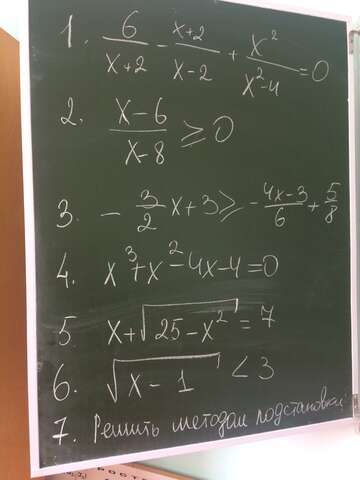 1. 6/(x+2) - (x+2)/(x-2) + x²/(x²-4) = 0
2. (x-6)/(x-8) ⩾ 0
3. - 3/2 x + 3 ⩾ - (4x-3)/6 + 5/8
4. x³ + x² - 4x - 4 = 0
5. x + √(25 - x²) = 7
6. √(x - 1) < 3
7. Решить методом подстановки